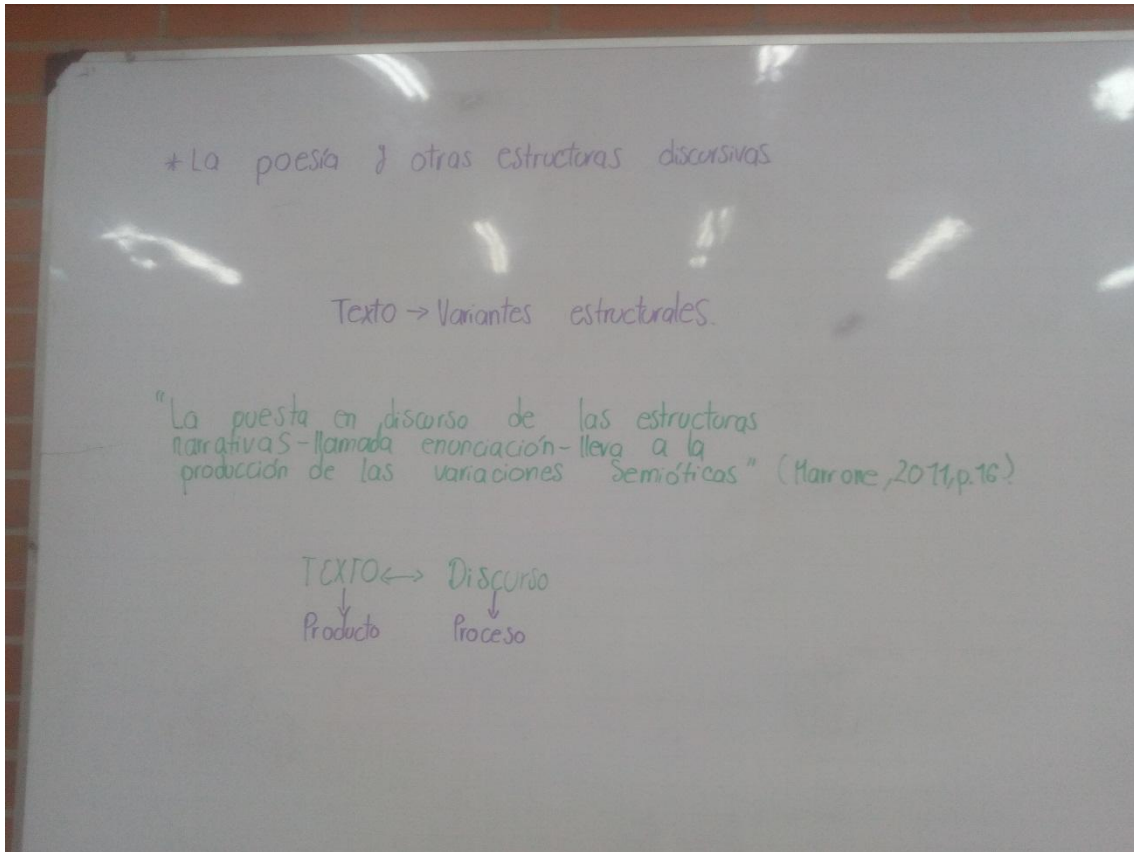 *La poesía y otras estructuras discursivas
Texto → Variantes estructurales.
"La puesta en discurso de las estructuras
narrativas-llamada enunciación-lleva a la
producción de las variaciones semióticas" (Marrone, 2011, p.16)
TEXTO ↔ Discurso
↓ ↓
Producto Proceso